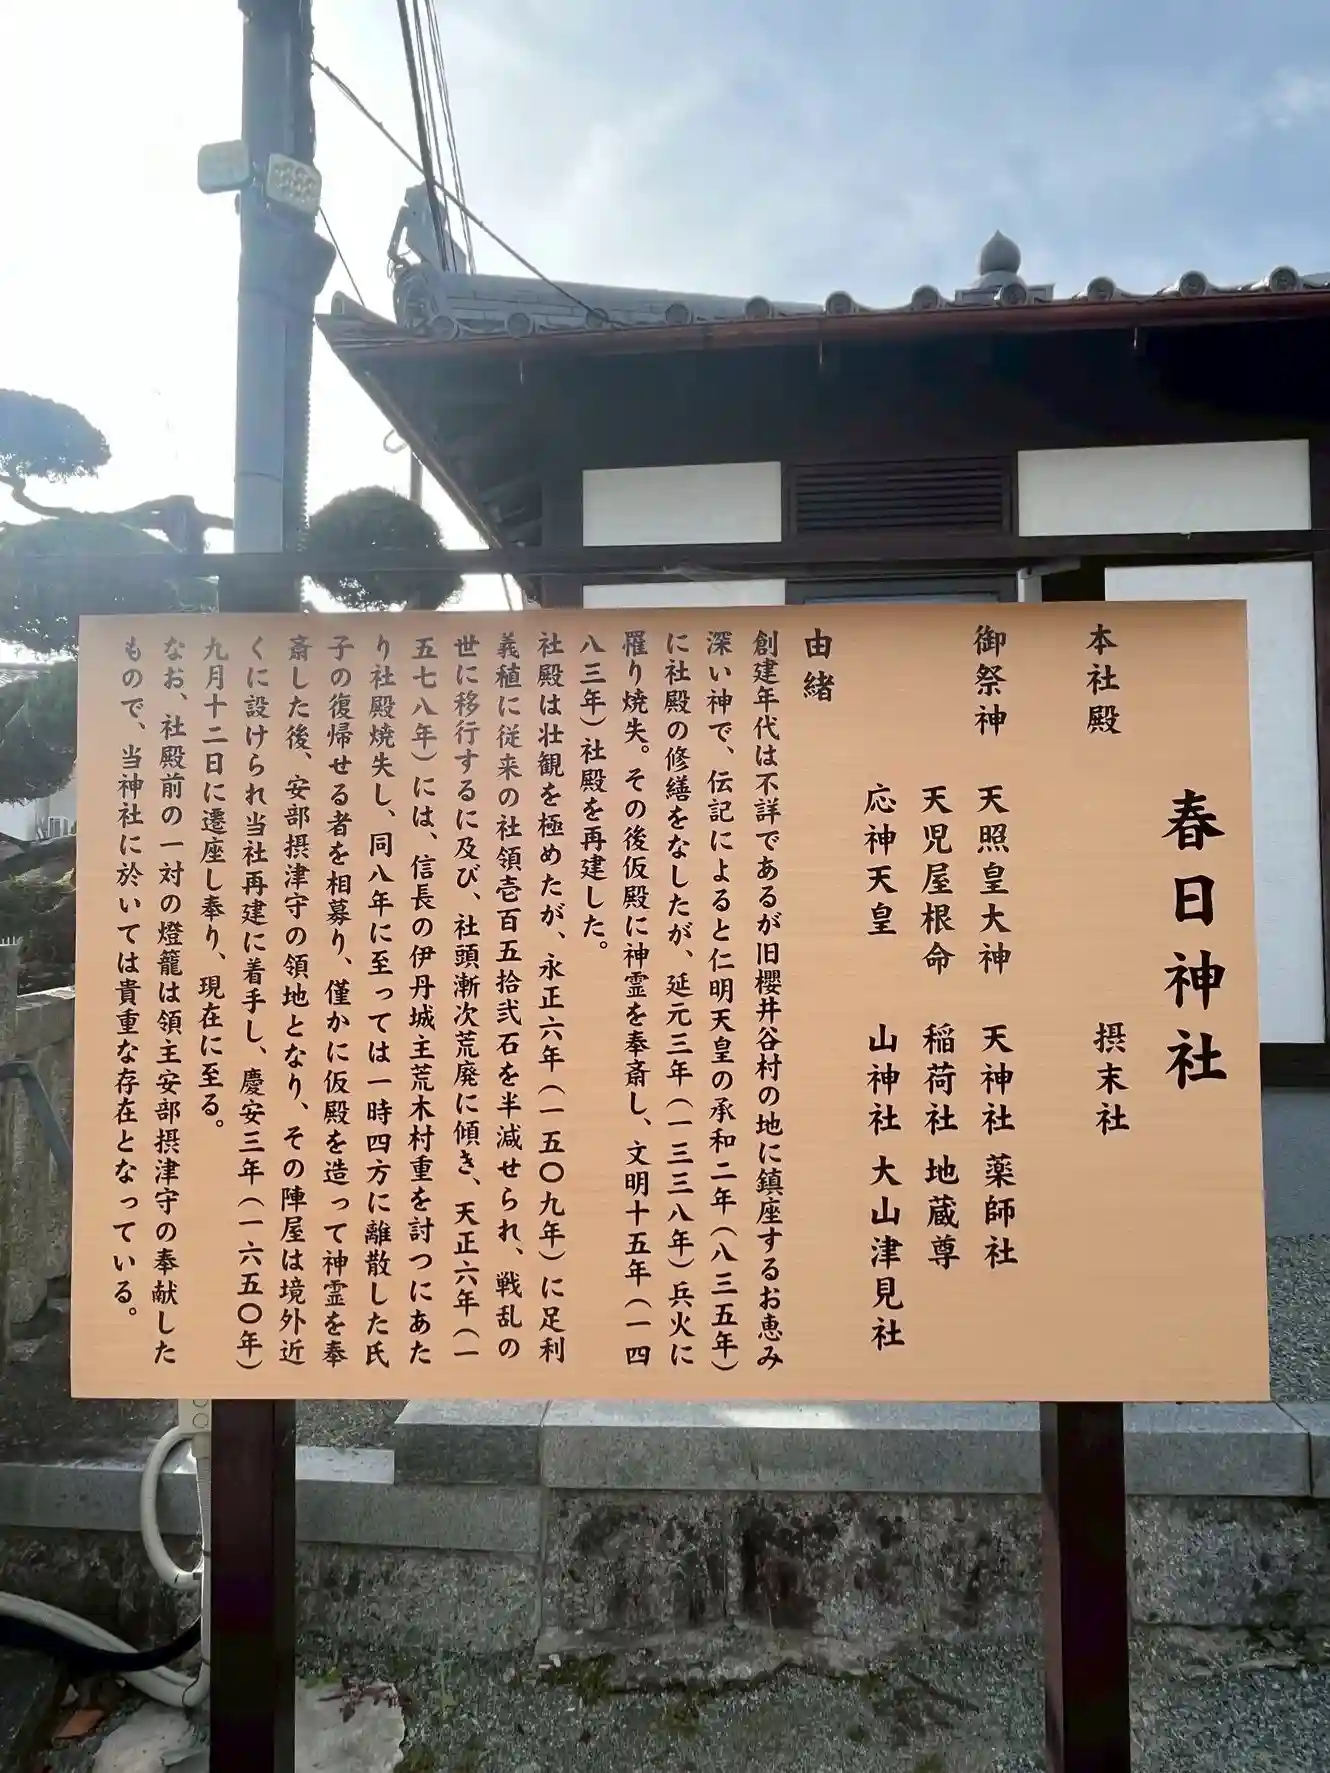 春日神社
本社殿 摂末社
御祭神 天照皇大神 天神社 薬師社
天児屋根命 稲荷社 地蔵尊
応神天皇 山神社 大山津見社
由緒
創建年代は不詳であるが旧櫻井谷村の地に鎮座するお恵み
深い神で、伝記によると仁明天皇の承和二年(八三五年)
に社殿の修繕をなしたが、延元三年(一三三八年)兵火に
罹り焼失。その後仮殿に神霊を奉斎し、文明十五年(一四
八三年)社殿を再建した。
社殿は壮観を極めたが、永正六年(一五〇九年)に足利
義稙に従来の社領壱百五拾弐石を半減せられ、戦乱の
世に移行するに及び、社頭漸次荒廃に傾き、天正六年(一
五七八年)には、信長の伊丹城主荒木村重を討つにあた
り社殿焼失し、同八年に至っては一時四方に離散した氏
子の復帰せる者を相募り、僅かに仮殿を造って神霊を奉
斎した後、安部摂津守の領地となり、その陣屋は境外近
くに設けられ当社再建に着手し、慶安三年(一六五〇年)
九月十二日に遷座し奉り、現在に至る。
なお、社殿前の一対の燈籠は領主安部摂津守の奉献した
もので、当神社に於いては貴重な存在となっている。